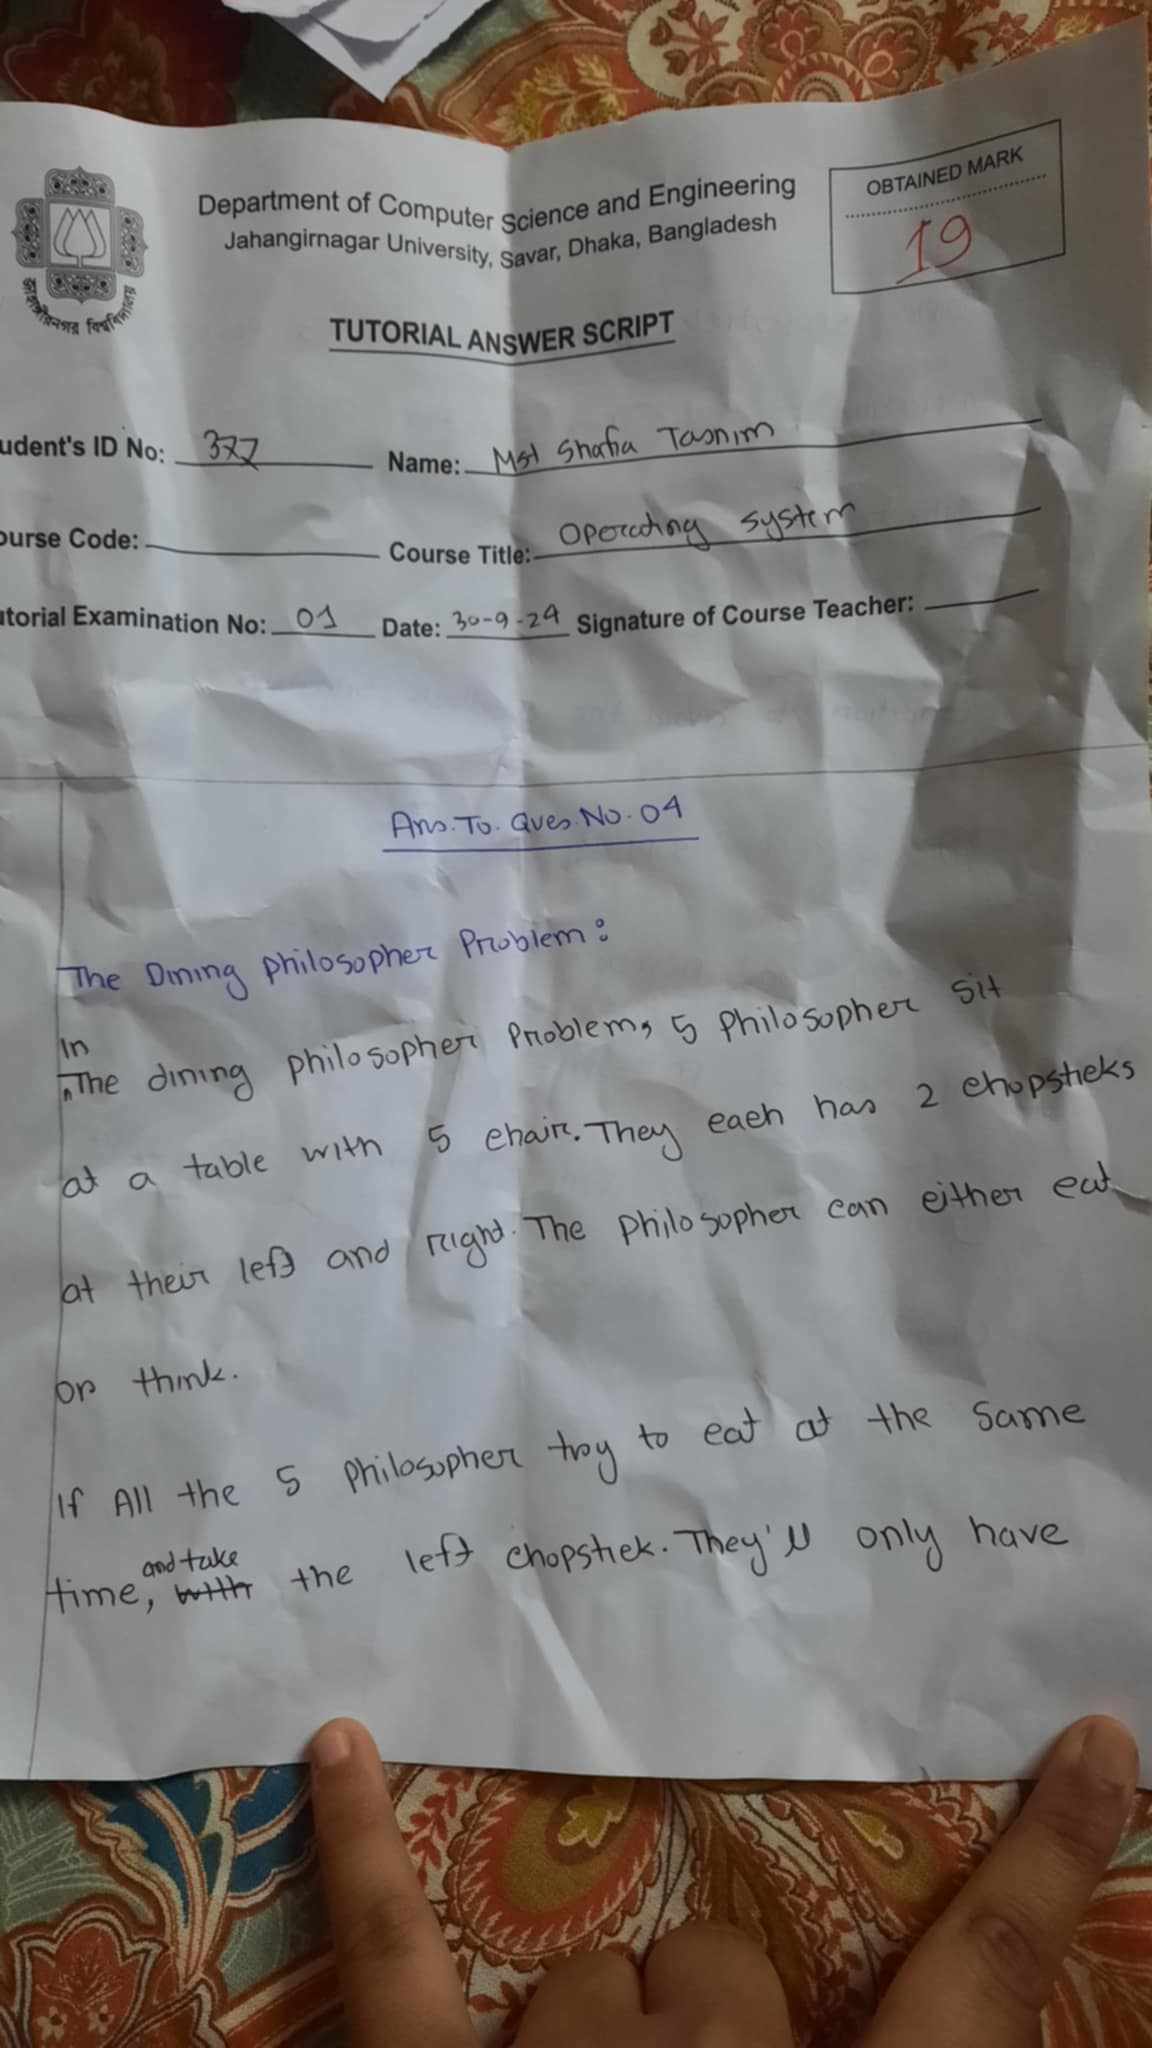 Department of Computer Science and Engineering
Jahangirnagar University, Savar, Dhaka, Bangladesh
OBTAINED MARK
19
জাহাঙ্গীরনগর বিশ্ববিদ্যালয়
TUTORIAL ANSWER SCRIPT
udent's ID No: 377 Name: Mst Shafia Tasnim
ourse Code: Course Title: Operating system
utorial Examination No: 01 Date: 30-9-24 Signature of Course Teacher:
Ans. To. Ques. No. 04
The Dining philosopher Problem:
In
The dining philosopher Problem, 5 philosopher sit
at a table with 5 chair. They each has 2 chopsticks
at their left and right. The philosopher can either eat
or think.
If All the 5 philosopher try to eat at the same
time, and take with the left chopstick. They'll only have